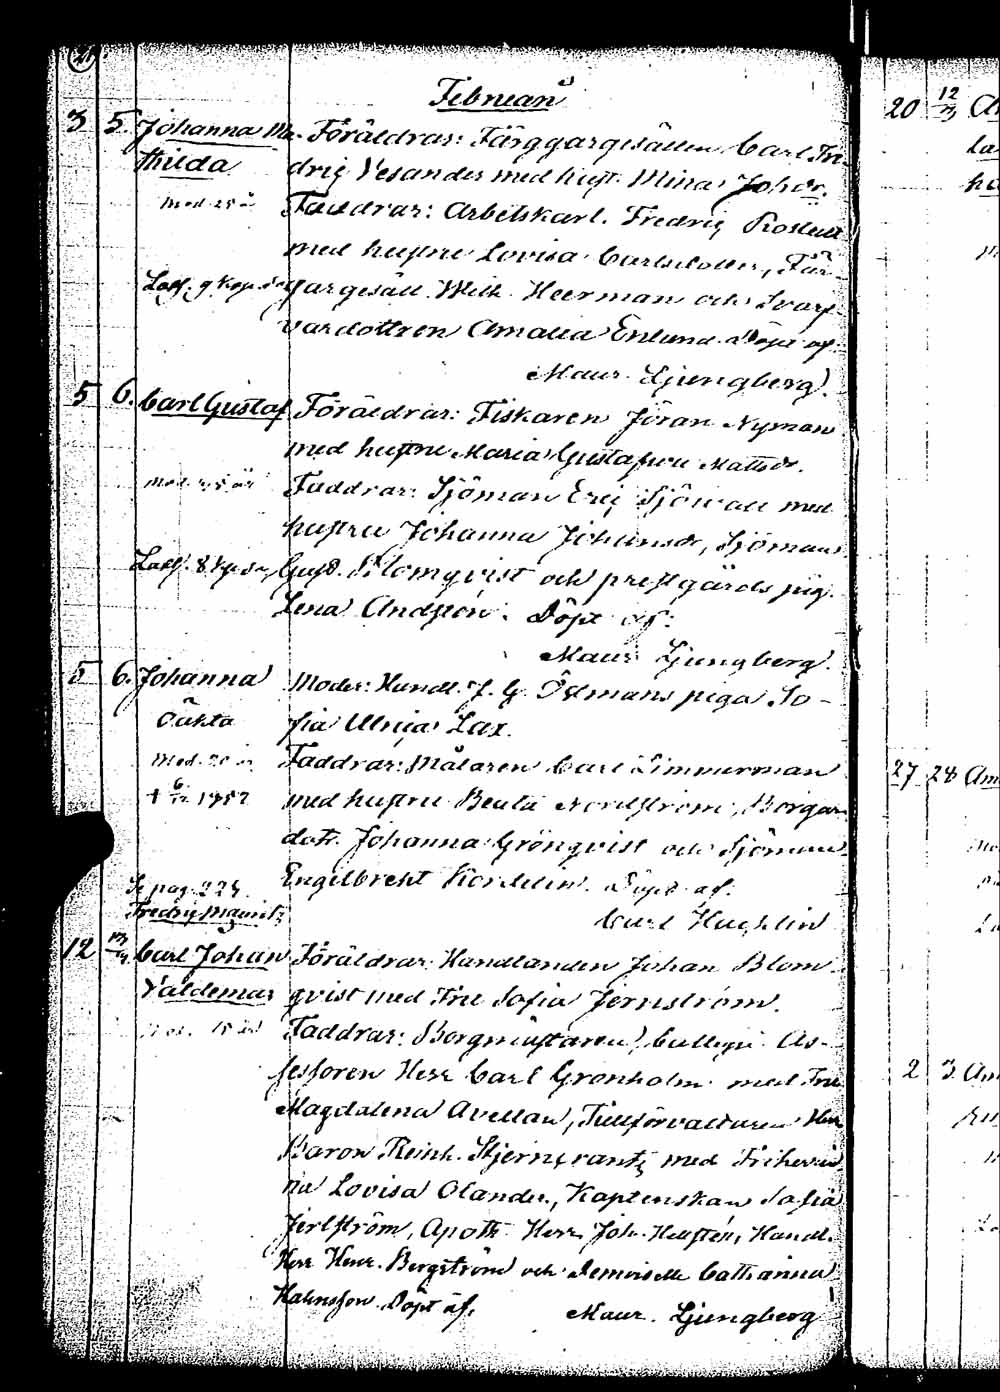 Februari
3 5. Johanna Ma- Föräldrar: Färggargesällen Carl Fre-
thilda drig Vesander med hust. Mina Johsdr.
Mod. 25 år Faddrar: Arbetskarl. Fredriç
med hustru Lovisa Carlsdotter, Fär-
gargesäll Wilh. Heerman och Svarf-
vardottren Amalia Enlund. Döpt af
Maur. Ljungberg.
5 6. Carl Gustaf Föräldrar: Fiskaren Jöran Nyman
med hustru Maria Gustafva Mattsdr.
Mod. år Faddrar: Sjöman Eriç Sjöwall med
hustru Johanna Johansdr, Sjöman
Gust. Blomqvist och prestgårds pig.
Lena Andssön. Döpt af:
Maur. Ljungberg.
5 6. Johanna Moder: Handl. J. G. Östmans piga So-
Oäkta fia Ulriça Lax.
Mod. år Faddrar: Målaren Carl Timmerman
med hustru Beata Nordström, Borgar-
dott. Johanna Grönqvist och Sjöman
Engelbrekt Kordelin. Döpt af.
Se pag. 225.
Fredriç Mauritz Carl
12 Carl Johan Föräldrar: Handlanden Johan Blom-
Valdemar qvist med Fru Sofia Jernström.
Faddrar: Borgmästaren, Collegii As-
sessoren Herr Carl Grönholm med Fru
Magdalena Avellan, Tullförvaltaren Herr
Baron Reinh. Stjerncrantz med Friherrin-
na Lovisa Olander, Kaptenskan Sofia
Jerlström, Apoth. Herr Joh. Hellsten, Handl.
Herr Henr. Bergström och Demoiselle Catharina
Hakinsson. Döpt af.
Maur. Ljungberg
20 12/3
27 28 Am
2 3 Am